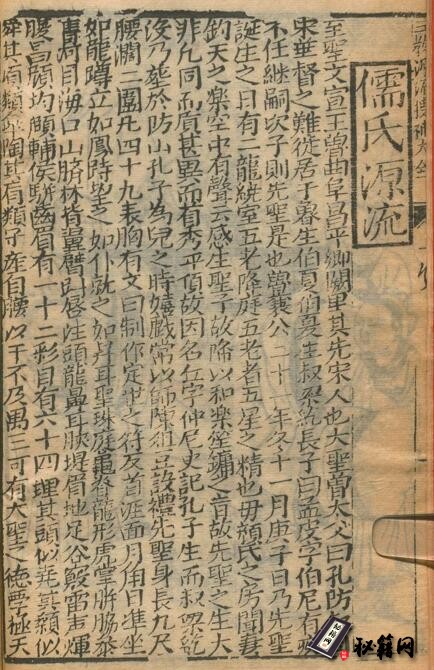 三教源流搜神大全
儒氏源流
至聖文宣王魯曲阜昌平鄉闕里其先宋人也大聖曾大父曰孔防
宋華督之難徙居于魯生伯夏伯夏生叔梁紇長子曰孟皮字伯尼有
不任継嗣次子則先聖是也魯襄公二十一年冬十一月庚子日乃先聖
誕生之日有二龍繞室五老降庭五老者五星之精也毋顏氏之房聞奏
鈞天之樂空中有聲云感生聖子故降以和樂笙鏞之音故先聖之生大
非凡同而質甚異而有秀平頂故因名丘字仲尼史記孔子生而叔梁紇
沒乃葬於防山孔子為兒之時嬉戲常以師陳俎豆設禮先聖身長九尺
腰濶三圍凡四十九表胸有文曰制作定世之符反首洼面月角日準坐
如龍蹲立如鳳峙望之如仆就之如升耳垂珠庭龜脊龍形虎掌胼脇參
膺河目海口山臍林背翼臂斗唇注頭隆鼻阜脥堤眉地足谷竅雷声輝
腹昌顏均頤輔喉駢齒眉有一十二彩目有六十四理其頭似堯其顙似
舜其項類皋陶其肩類子産自腰以下不及禹三寸有大聖之德學極天
秘籍网